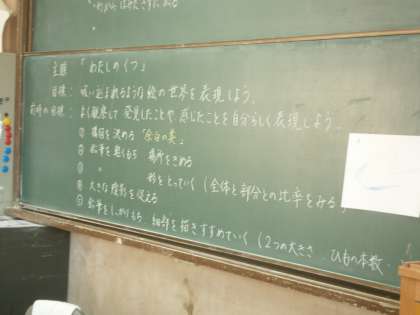 主題 「わたしのくつ」
目標: 吸い込まれるような絵の世界を表現しよう。
本時の目標: よく観察して発見したことや、感じたことを自分らしく表現しよう。
① 構図を決める 「余白の美」
② 鉛筆を軽くもち 場所をきめる
③ 〃 形をとっていく (全体と部分との比率をみる)
④ 大きな陰影を捉える
⑤ 鉛筆をしっかりもち 細部を描きすすめていく (2つの大きさ、ひもの本数・